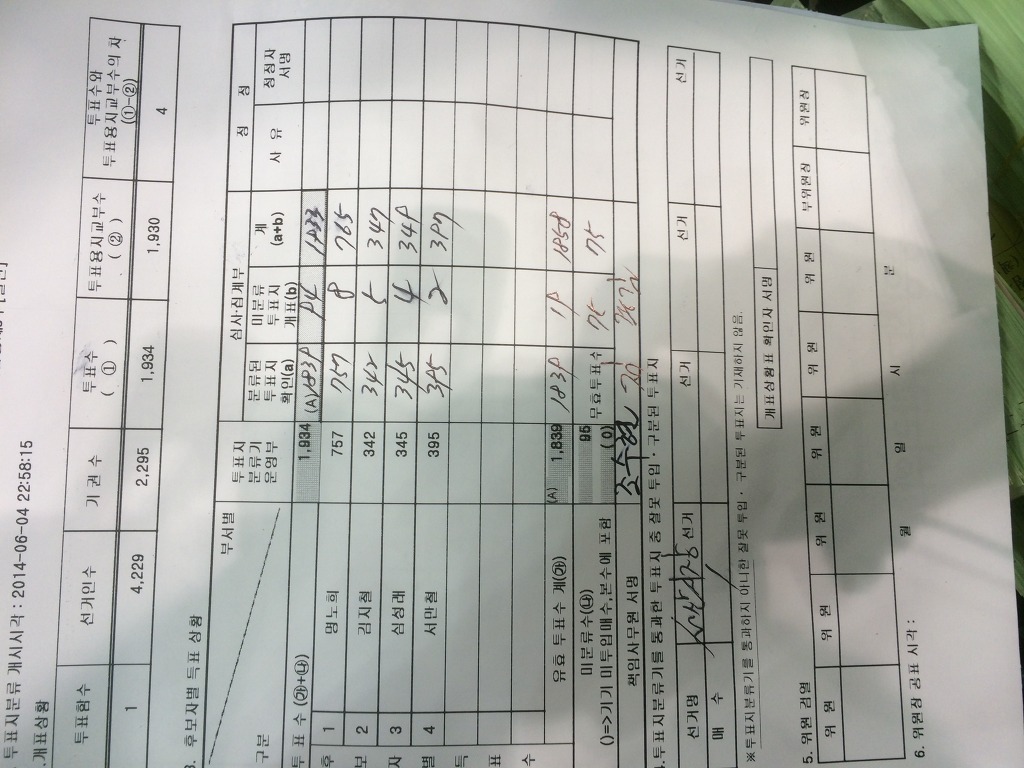 투표지분류 개시시각 : 2014-06-04 22:58:15
.개표상황
투표함수 선거인수 기 권 수 투표수 ( ① ) 투표용지교부수 ( ② ) 투표수와 투표용지교부수의 차 (①-②)
1 4,229 2,295 1,934 1,930 4
3. 후보자별 득표 상황
구분 부서별 투표지 분류기 운영부 심사·집계부 정 정
분류된 투표지 확인(a) 미분류 투표지 개표(b) 계 (a+b) 사 유 정정자 서명
투 표 수 (㉮+㉯) 1,934 (A) 1839 94 1933
1 명노희 757 757 8 765
2 김지철 342 342 5 347
3 심성래 345 345 4 349
4 서만철 395 395 2 397
유효 투표수 계(㉮) (A) 1,839 1839 19 1858
미분류수(㉯) 95 무효투표수 75 75
()=>기기 미투입매수·본수에 포함 ( 0)
책임사무원 서명
4.투표지분류기를 통과한 투표지 중 잘못 투입 · 구분된 투표지
선거명 시·도지사 선거 선거 선거 선거
매 수
※투표지분류기를 통과하지 아니한 잘못 투입 · 구분된 투표지는 기재하지 않음.
개표상황표 확인자 서명
5. 위원 검열
위 원 위 원 위 원 위 원 위 원 위 원 부위원장 위원장
6. 위원장 공표 시각 : 월 일 시 분